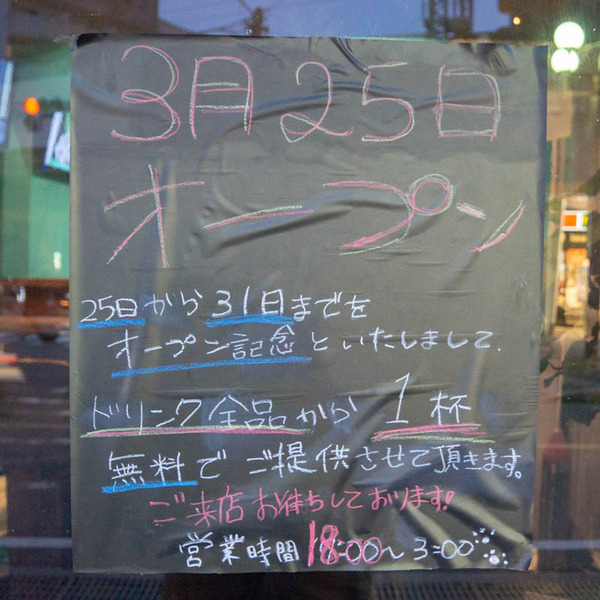 3月25日
オープン
25日から31日までを
オープン記念といたしまして.
ドリンク全品から1杯
無料でご提供させて頂きます。
ご来店お待ちしております!
営業時間 18:00〜3:00